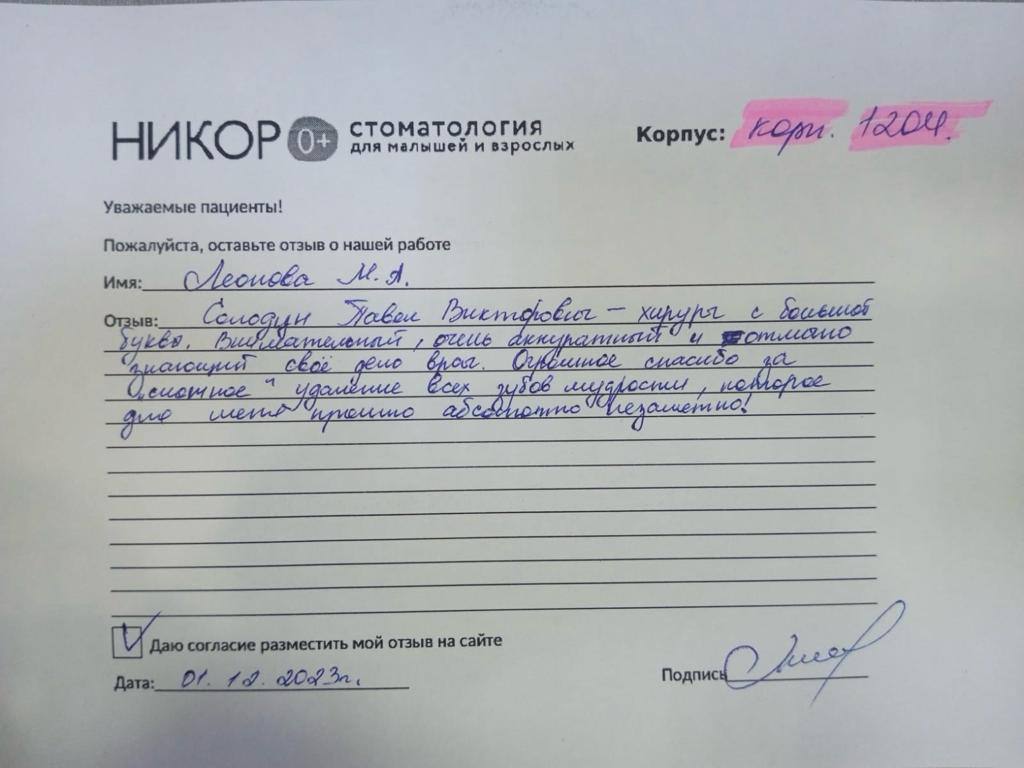 НИКОР 0+ СТОМАТОЛОГИЯ
для малышей и взрослых
Корпус: корп. 1204.
Уважаемые пациенты!
Пожалуйста, оставьте отзыв о нашей работе
Имя: Леонова М.А.
Отзыв: Солодун Павел Викторович – хирург с большой
буквы. Внимательный, очень аккуратный и отлично
знающий своё дело врач. Огромное спасибо за
"сложное" удаление всех зубов мудрости, которое
для меня прошло абсолютно незаметно!
Даю согласие разместить мой отзыв на сайте
Дата: 01.12.2023г.
Подпись